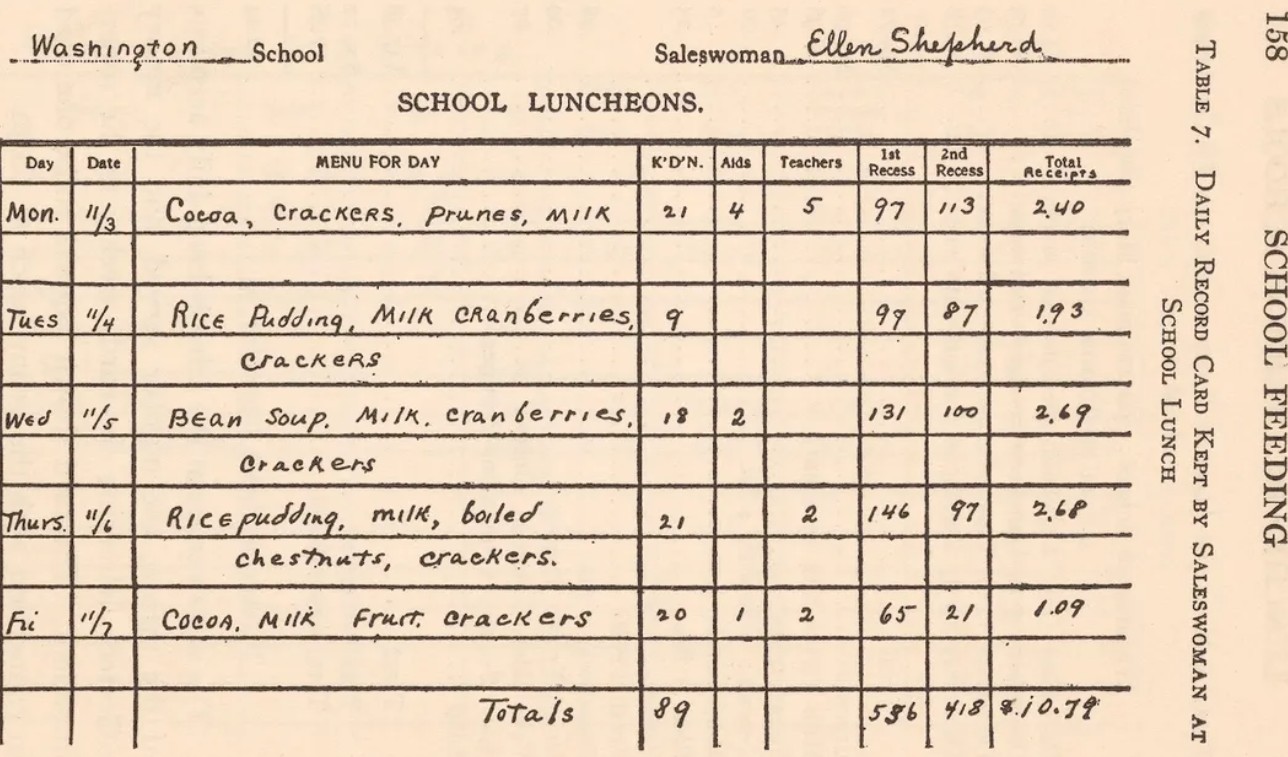 Washington School Saleswoman Ellen Shepherd
SCHOOL LUNCHEONS.
Day Date MENU FOR DAY K'D'N. Aids Teachers 1st Recess 2nd Recess Total Receipts
Mon. 11/3 Cocoa, crackers, prunes, milk 21 4 5 97 113 2.40
Tues 11/4 Rice Pudding, Milk cranberries, 9 97 87 1.93
crackers
Wed 11/5 Bean Soup. Milk. cranberries, 18 2 131 100 2.69
crackers
Thurs. 11/6 Rice pudding, milk, boiled 21 2 146 97 2.68
chestnuts, crackers.
Fri 11/7 Cocoa. Milk Fruit. crackers 20 1 2 65 21 1.09
Totals 89 536 418 $.10.79
158 SCHOOL FEEDING
TABLE 7. DAILY RECORD CARD KEPT BY SALESWOMAN AT
SCHOOL LUNCH